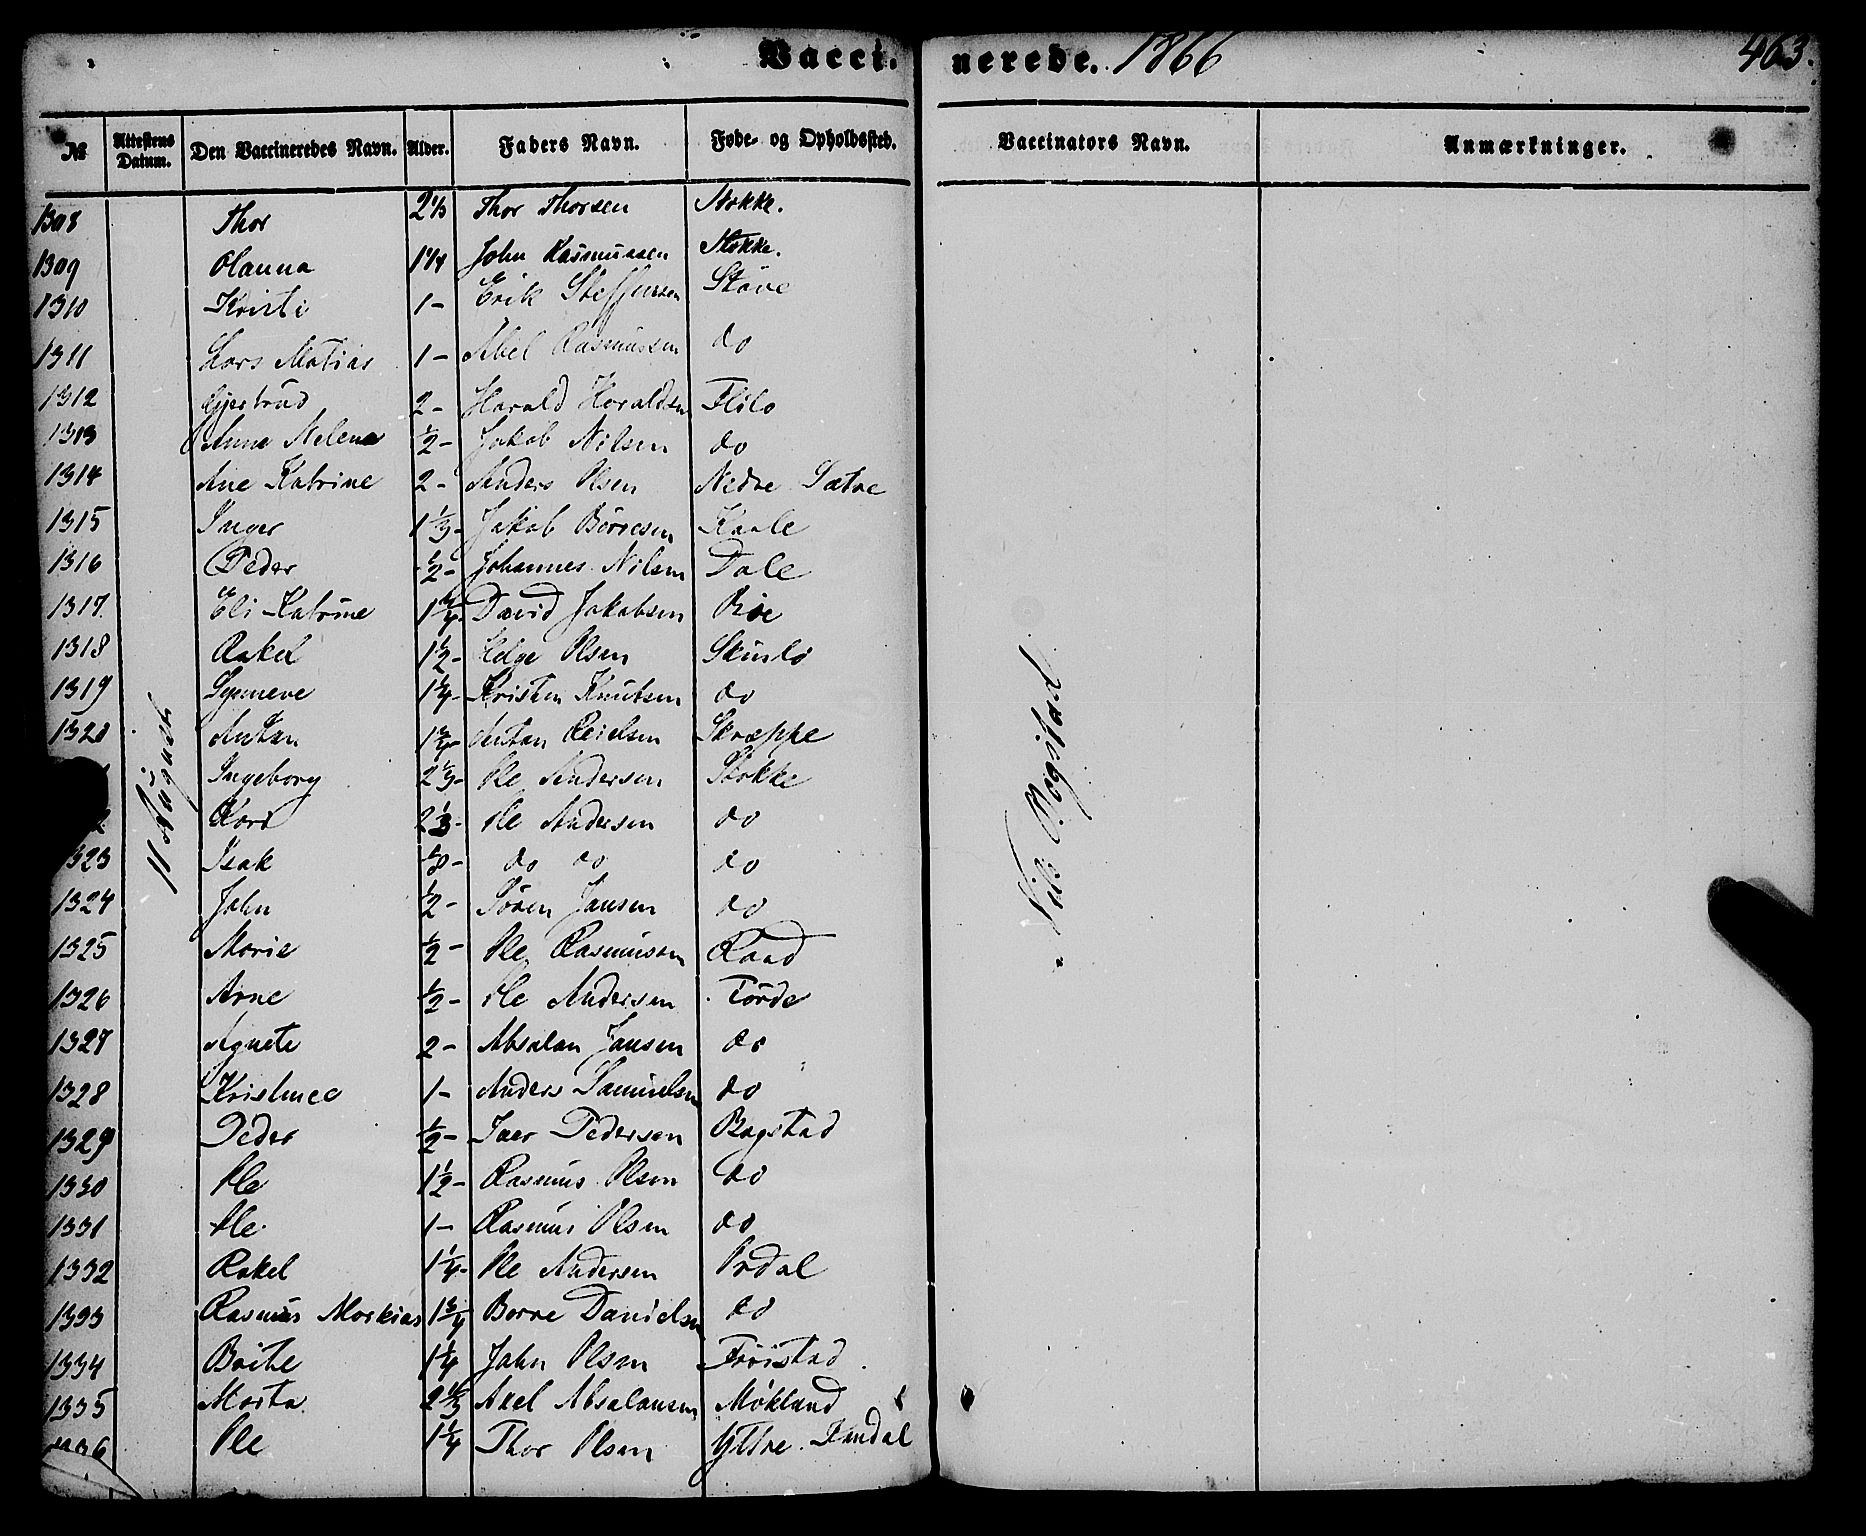 Vacci. nerede. 1866 463.
№ Attestens Datum. Den Vaccineredes Navn. Alder. Faders Navn. Føde- og Opholdssted. Vaccinators Navn. Anmærkninger.
11 August
Nils Bogstad
1308 Thor 2 1/3 Thor Thorsen Stokke.
1309 Olanna 1 1/4 John Rasmussen Stokke.
1310 Kristi 1- Erik Steffensen Støve
1311 Lars Matias 1- Abel Rasmussen do
1312 Gjertrud 2- Harald Haraldsen Flilo
1313 Anne Nelena 1/2- Jakob Nilsen do
1314 Ane Katrine 2- Anders Olsen Nedre Sætre
1315 Inger 1 1/3- Jakob Børresen Kaale
1316 Peder 1/2- Johannes Nilsen Dale
1317. Eli Katrine David Jakobsen
1318 Rakel 1 1/2- Helge Olsen Skinlo
1319 Synneve 1 1/4- Kristen Knutsen do
1320 Antan 1 3/4- Antan Reielsen Skræppe
Ingeborg 2 1/3- Ole Andersen Stokke
2 Kari 2 1/3- Ole Andersen do
1323 Isak do do do
1324 John 1/2- Sören Jansen do
1325 Marie 1/2- Ole Rasmussen Raad
1326 Arne 1/2- Ole AndersenFörde
1327 Agnete 2- Absalan Jansen do
1328 1- Anders Samuelsen do
1329 Peder 1/2- Iver Pedersen Bogstad
1330 Ole 1 1/2- Rasmus Olsen do
1331 Ole 1- Rasmus Olsen do
1332 Rakel 1 1/4- Ole Andersen Ordal
1333 Rasmus Markias 1 3/4 Børre Danielsen do
1334 Brite 1 1/4 John Olsen Frøistad
1335 Marta 2 1/3 Axel Absalansen Møkland
1336 Ole 1 1/4 Thor Olsen Yttre Dendal